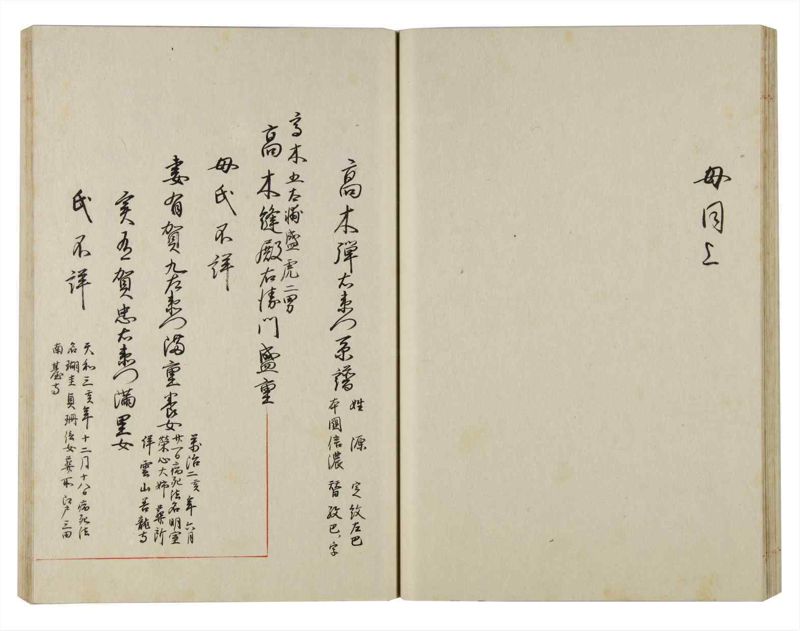 母同上
高木弾右衛門系譜
姓 源 定紋左巴
本国信濃 替紋巴ノ字
高木五左衛門盛虎二男
高木縫殿右衛門盛重
母氏不詳
妻有賀九左衛門満重養女
実有賀忠右衛門満里女
万治二亥年六月
廿一日病死法名明室
栄心大姉葬所
伴雲山善龍寺
氏不詳
天和三亥年十二月十八日病死法
名瑚圭貞珊法女葬所江戸三田
南台寺